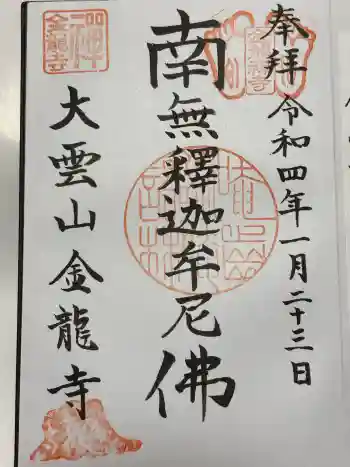 奉拝 令和四年一月二十三日
南無釋迦牟尼佛
大雲山金龍寺
禅
金龍寺